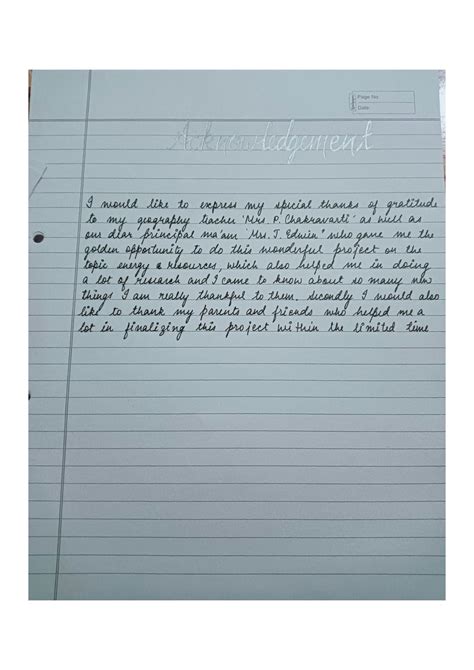 Page No.
Date
Acknowledgement
I would like to express my special thanks of gratitude
to my geography teacher 'Mrs. P. Chakravarti' as well as
our dear principal ma'am 'Mrs. J. Edwin' who gave me the
golden opportunity to do this wonderful project on the
topic energy & resources, which also helped me in doing
a lot of research and I came to know about so many new
things I am really thankful to them. Secondly I would also
like to thank my parents and friends who helped me a
lot in finalizing this project within the limited time